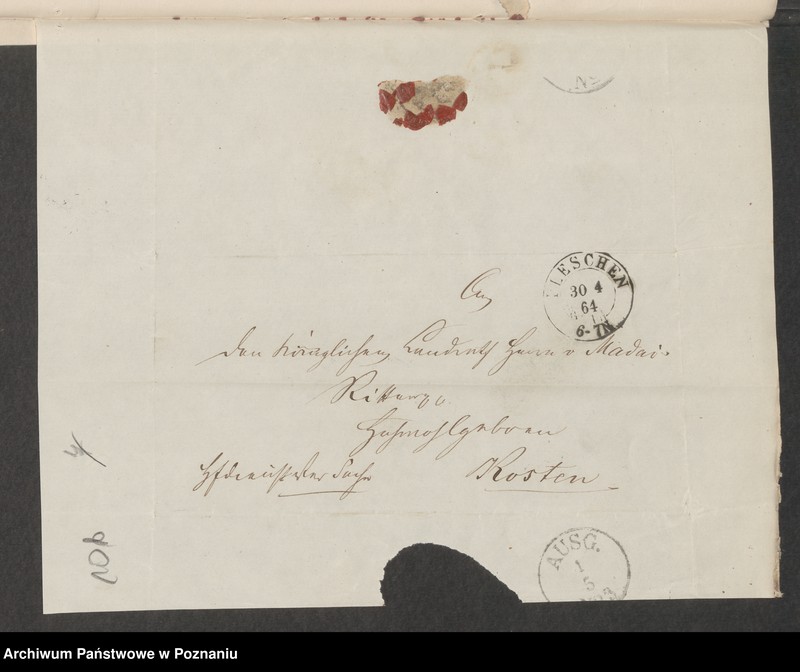 No
PLESCHEN
30 4
64
6-7N
An
den Königlichen Landrath Herrn v Madai
Ritter pp
Hochwohlgeboren
Sache
Kosten
AUSG.
1
5
Archiwum Państwowe w Poznaniu